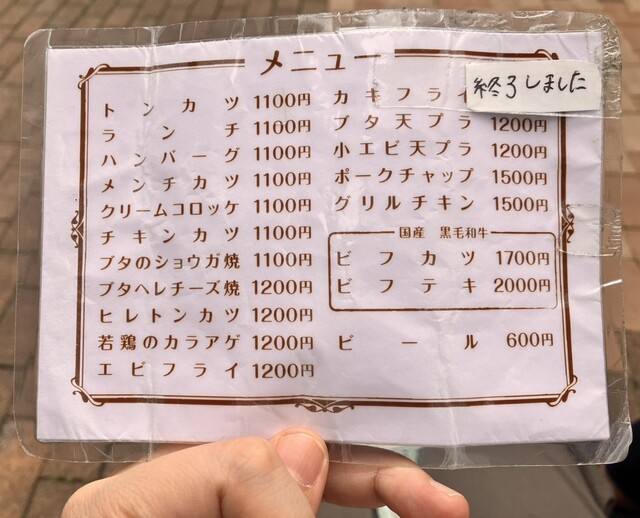 メニュー
トンカツ 1100円
ランチ 1100円
ハンバーグ 1100円
メンチカツ 1100円
クリームコロッケ 1100円
チキンカツ 1100円
ブタのショウガ焼 1100円
ブタヘレチーズ焼 1200円
ヒレトンカツ 1200円
若鶏のカラアゲ 1200円
エビフライ 1200円
カキフライ 終了しました
ブタ天プラ 1200円
小エビ天プラ 1200円
ポークチャップ 1500円
グリルチキン 1500円
国産 黒毛和牛
ビフカツ 1700円
ビフテキ 2000円
ビール 600円